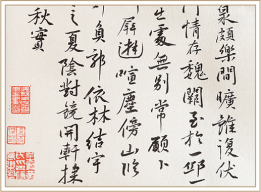 泉頗樂閒曠誰復伏
情存魏闕至於
生處無別常願卜
屏湫喧塵傍山臨
負郭依林結宇
之夏陰對鏡開軒採
秋實